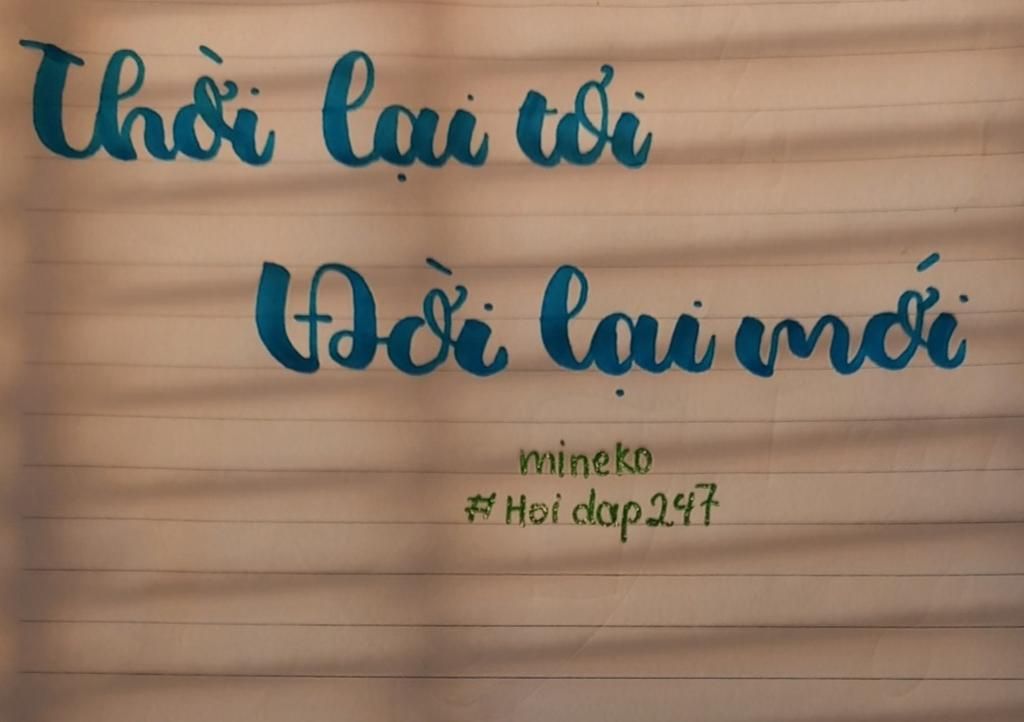 Thời lại tới
Đời lại mới
mineko
#Hoidap247